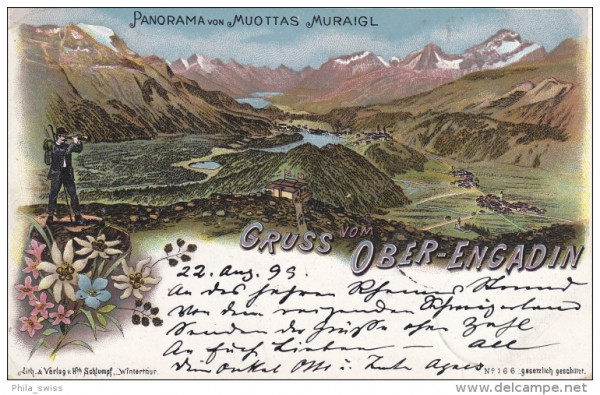 PANORAMA VON MUOTTAS MURAIGL
GRUSS VOM OBER-ENGADIN
22. Aug. 93.
An des fernen Rheines Strand
Von dem reizenden Schweizerland
Senden der Grüße ohne Zahl
An Euch Lieben – all
Dein Onkel Otti u. Tante Agnes
Lith. & Verlag v. Hch. Schlumpf, Winterthur.
Nº 166 gesetzlich geschützt.
Phila_swiss
delcampe.net